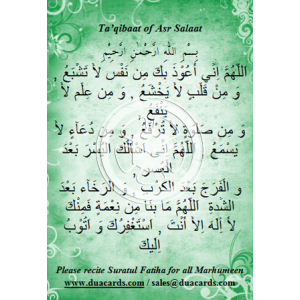 Ta'qibaat of Asr Salaat
بِسْمِ اللهِ الرَّحْمٰنِ الرَّحِيْمِ
اَللّٰهُمَّ اِنِّي اَعُوْذُ بِكَ مِنْ نَفْسٍ لاَ تَشْبَعُ ,
وَ مِنْ قَلْبٍ لاَ يَخْشَعُ , وَ مِنْ عِلْمٍ لاَ
يَنْفَعُ ,
وَ مِن صَلٰوةٍ لاَ تُرْفَعُ , وَ مِنْ دُعَاءٍ لاَ
يَسْمَعُ اَللّٰهُمَّ اِنِّي اَسْاَلُكَ الْيُسْرَ بَعْدَ
الْعُسْرِ ,
وَ الْفَرَجَ بَعْدَ الْكَرْبِ , وَ الرَّخَاءَ بَعْدَ
الشِّدَّةِ اَللّٰهُمَّ مَا بِنَا مِنْ نِعْمَةٍ فَمِنْكَ
لاَ اِلَهَ اِلاَّ اَنْتَ , اَسْتَغْفِرُكَ وَ اَتُوْبُ
اِلَيْكَ
Please recite Suratul Fatiha for all Marhumeen
www.duacards.com / sales@duacards.com